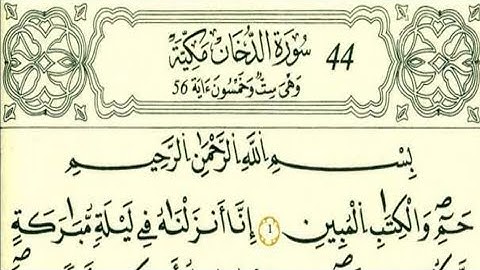 سُورَةُ الدُّخَانِ مَكِّيَّةٌ 44
وَهْيَ سِتٌّ وَخَمْسُونَ ءَايَة 56
بِسْمِ اِ۬للَّهِ اِ۬لرَّحْمَٰنِ اِ۬لرَّحِيمِ
حَمِٓ وَالْكِتَٰبِ اِ۬لْمُبِينِ 1 إِنَّا أَنزَلْنَٰهُ فِے لَيْلَةٍ مُّبَٰرَكَةٍ